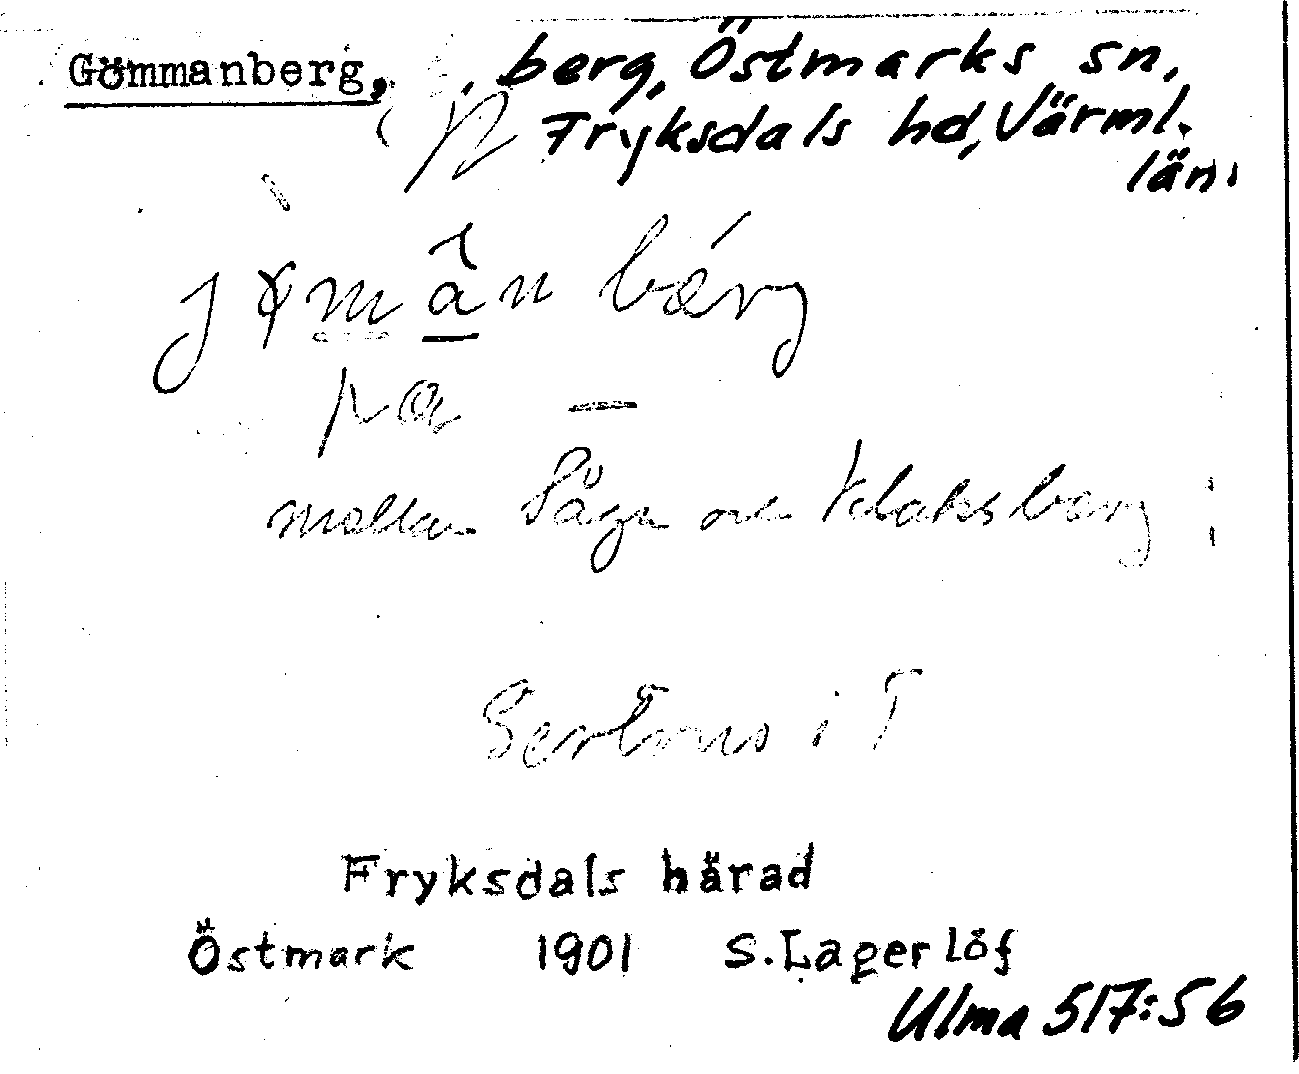 Gömmanberg, berg, Östmarks sn,
Fryksdals hd, Värml.
län.
på —
mellan Sågen och Klaksberg
i T
Fryksdals härad
Östmark 1901 S. Lagerlöf
Ulma 517:56